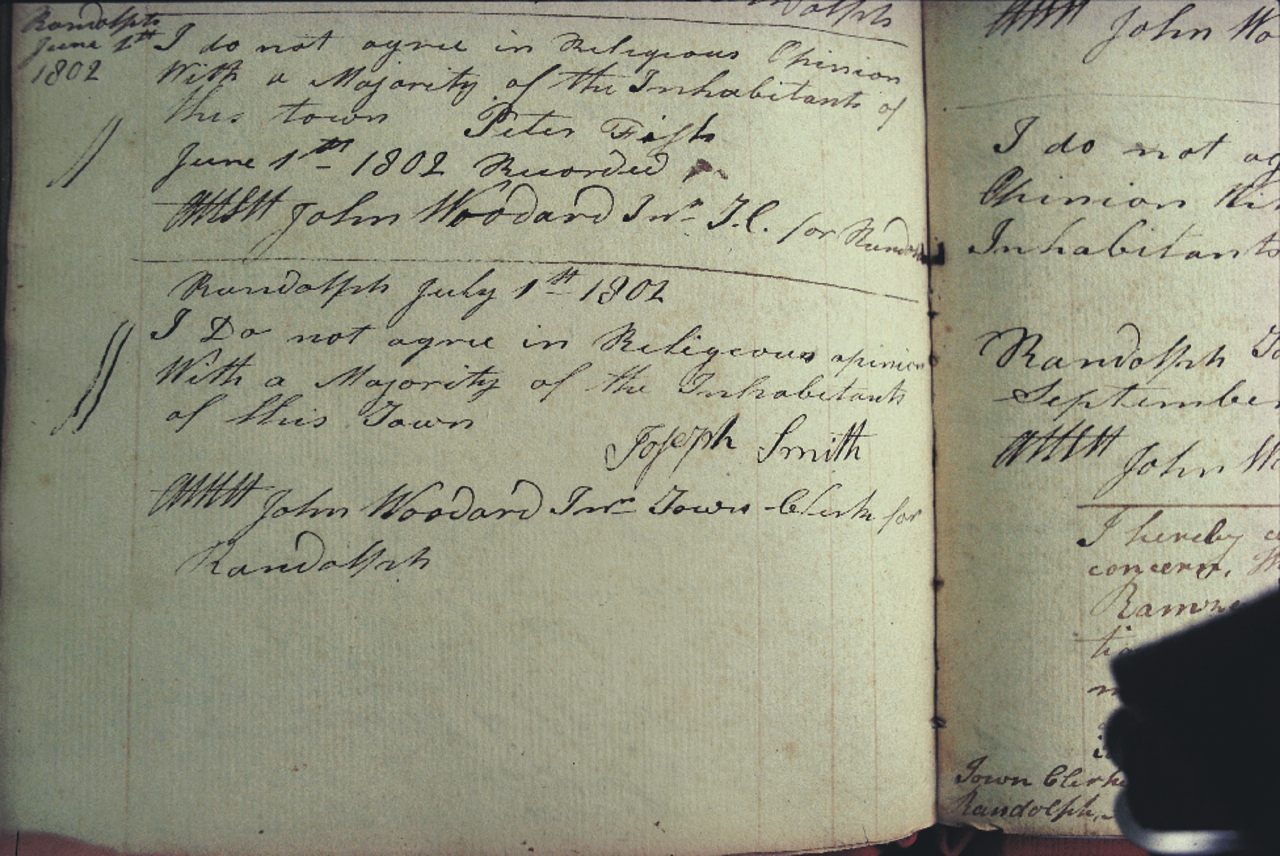 Randolph
Randolph
June 1st
1802
I do not agree in Religious Opinion
With a Majority of the Inhabitants of
this town Peter Fish
June 1th 1802 Recorded
Attest John Woodard Junr T.C. for Randolph
Randolph July 1st 1802
I Do not agree in Religeous opinion
With a Majority of the Inhabitants
of this Town
Joseph Smith
Attest John Woodard Junr Town Clerk for
Randolph
Attest John Wo
I do not ag
Opinion Wit
Inhabitants
Randolph
September
Attest John Wo
I hereby
concern,
Town Clerk
Randolph